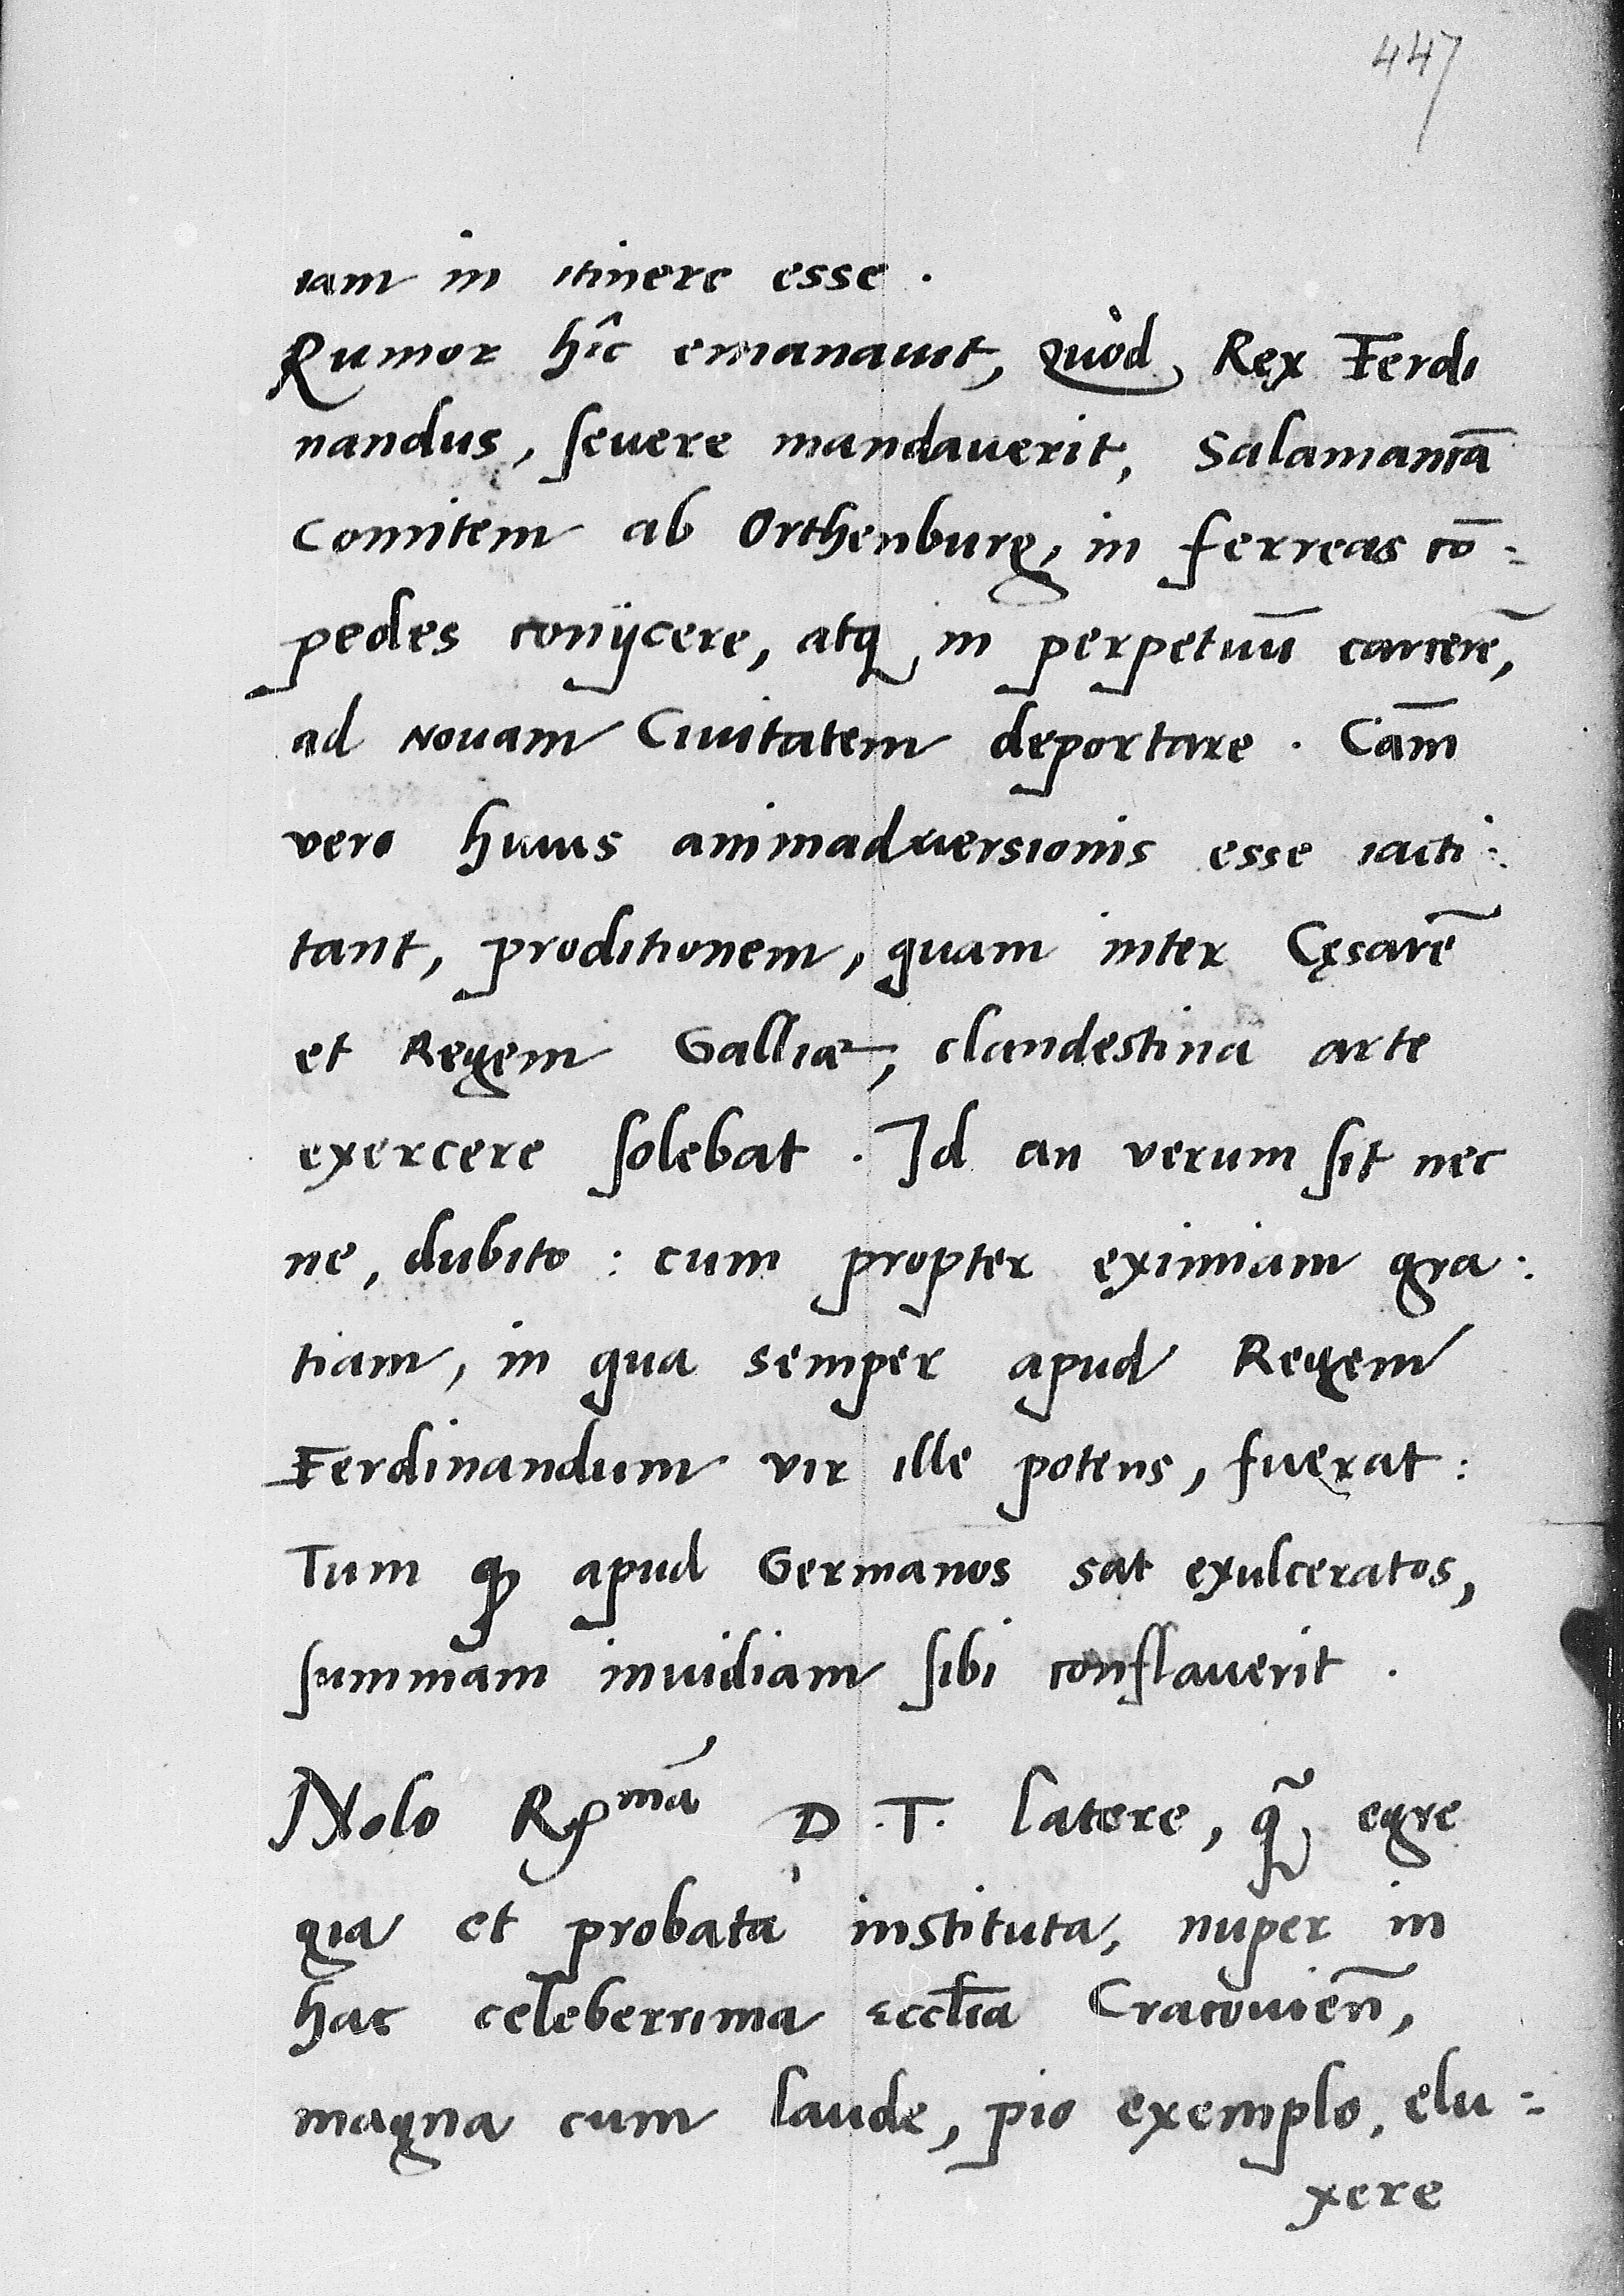 447
iam in itinere esse .
Rumor hîc emanauit, quòd Rex Ferdi
nandus, seuere mandauerit, Salamancā
Comitem ab Orthenburg, in ferreas cō:
pedes coniicere, atq in perpetuū carcerē,
ad Nouam Ciuitatem deportare . Cām
vero huius animaduersionis esse iacti:
tant, proditionem, quam inter Cęsarē
et Regem Galliæ, clandestina arte
exercere solebat . Id an verum sit nec
ne, dubito : cum propter eximiam gra:
tiam, in qua semper apud Regem
Ferdinandum vir ille potens, fuerat :
Tum ꝙ apud Germanos sat exulceratos,
summam inuidiam sibi conflauerit .
Nolo Rmā D. T. latere, q̃ egre
gia et probata instituta, nuper in
hac celeberrima Eccĺia Cracouieñ,
magna cum laude, pio exemplo, elu:
xere